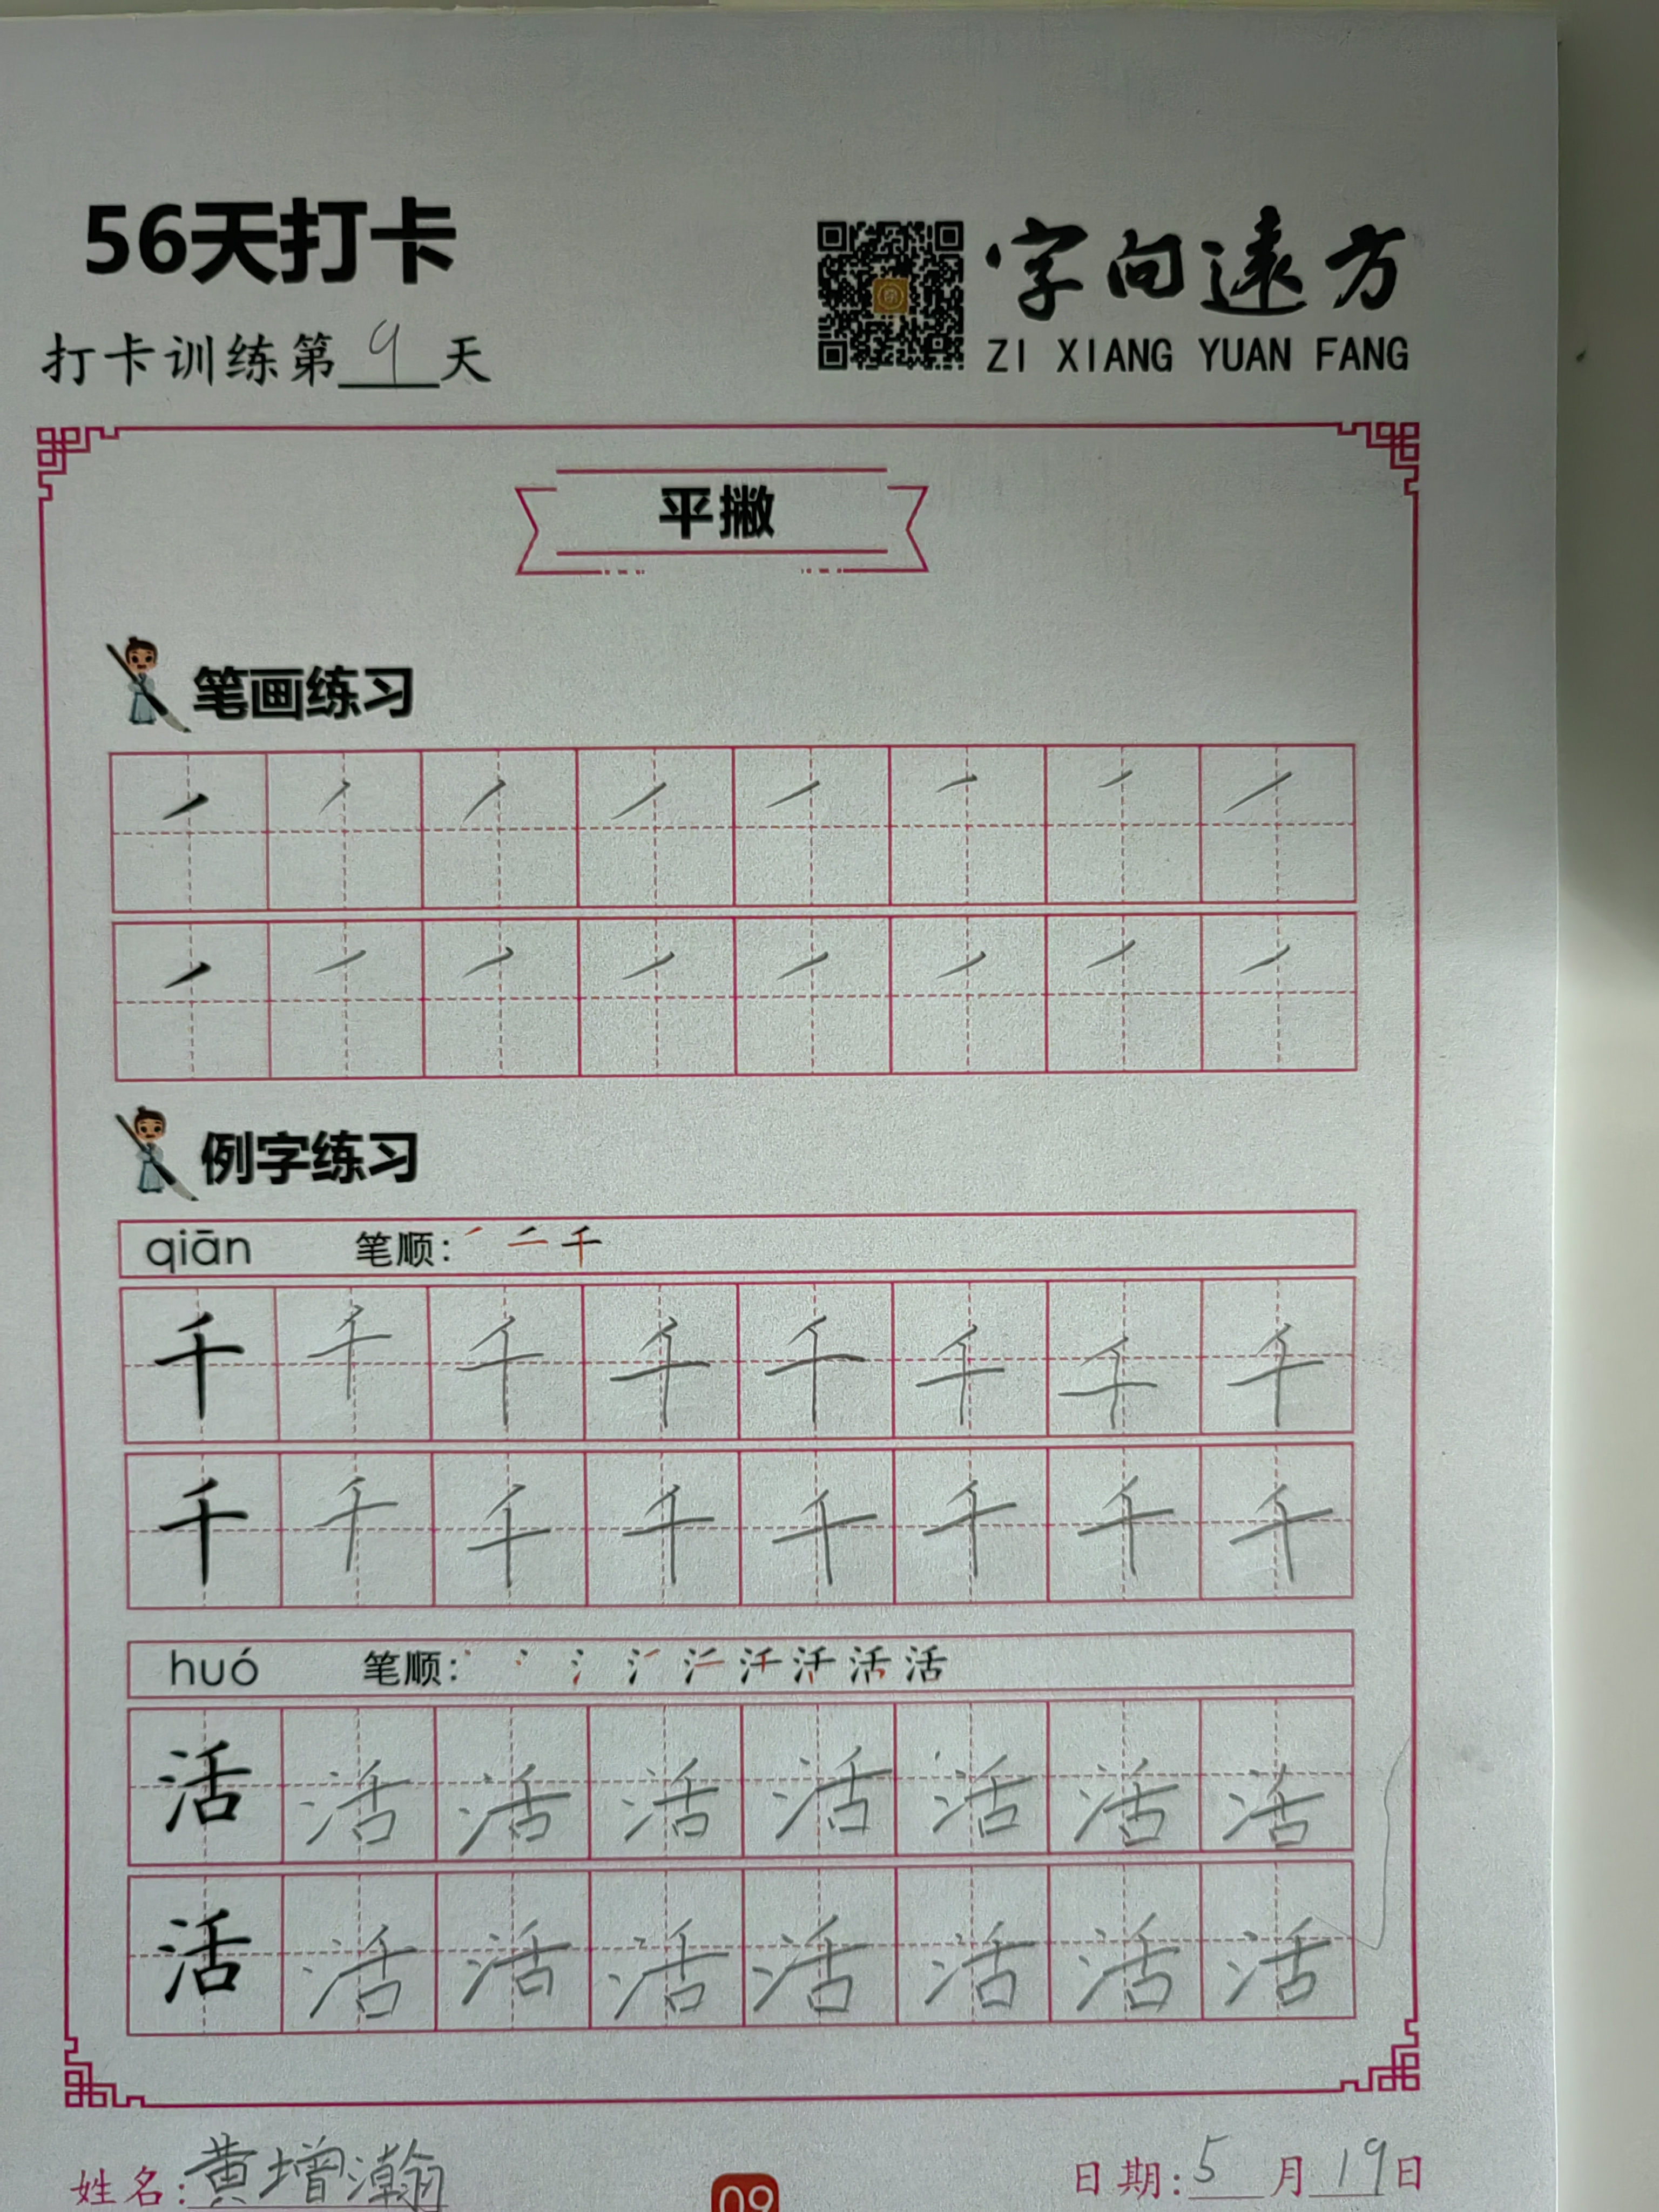 56天打卡
字向遠方
打卡训练第9天
ZI XIANG YUAN FANG
平撇
笔画练习
例字练习
qiān 笔顺: 千
千 千 千 千 千 千 千 千
千 千 千 千 千 千 千 千
huó 笔顺: 活
活 活 活 活 活 活 活 活
活 活 活 活 活 活 活 活
姓名:黄增瀚
09
日期:5月19日